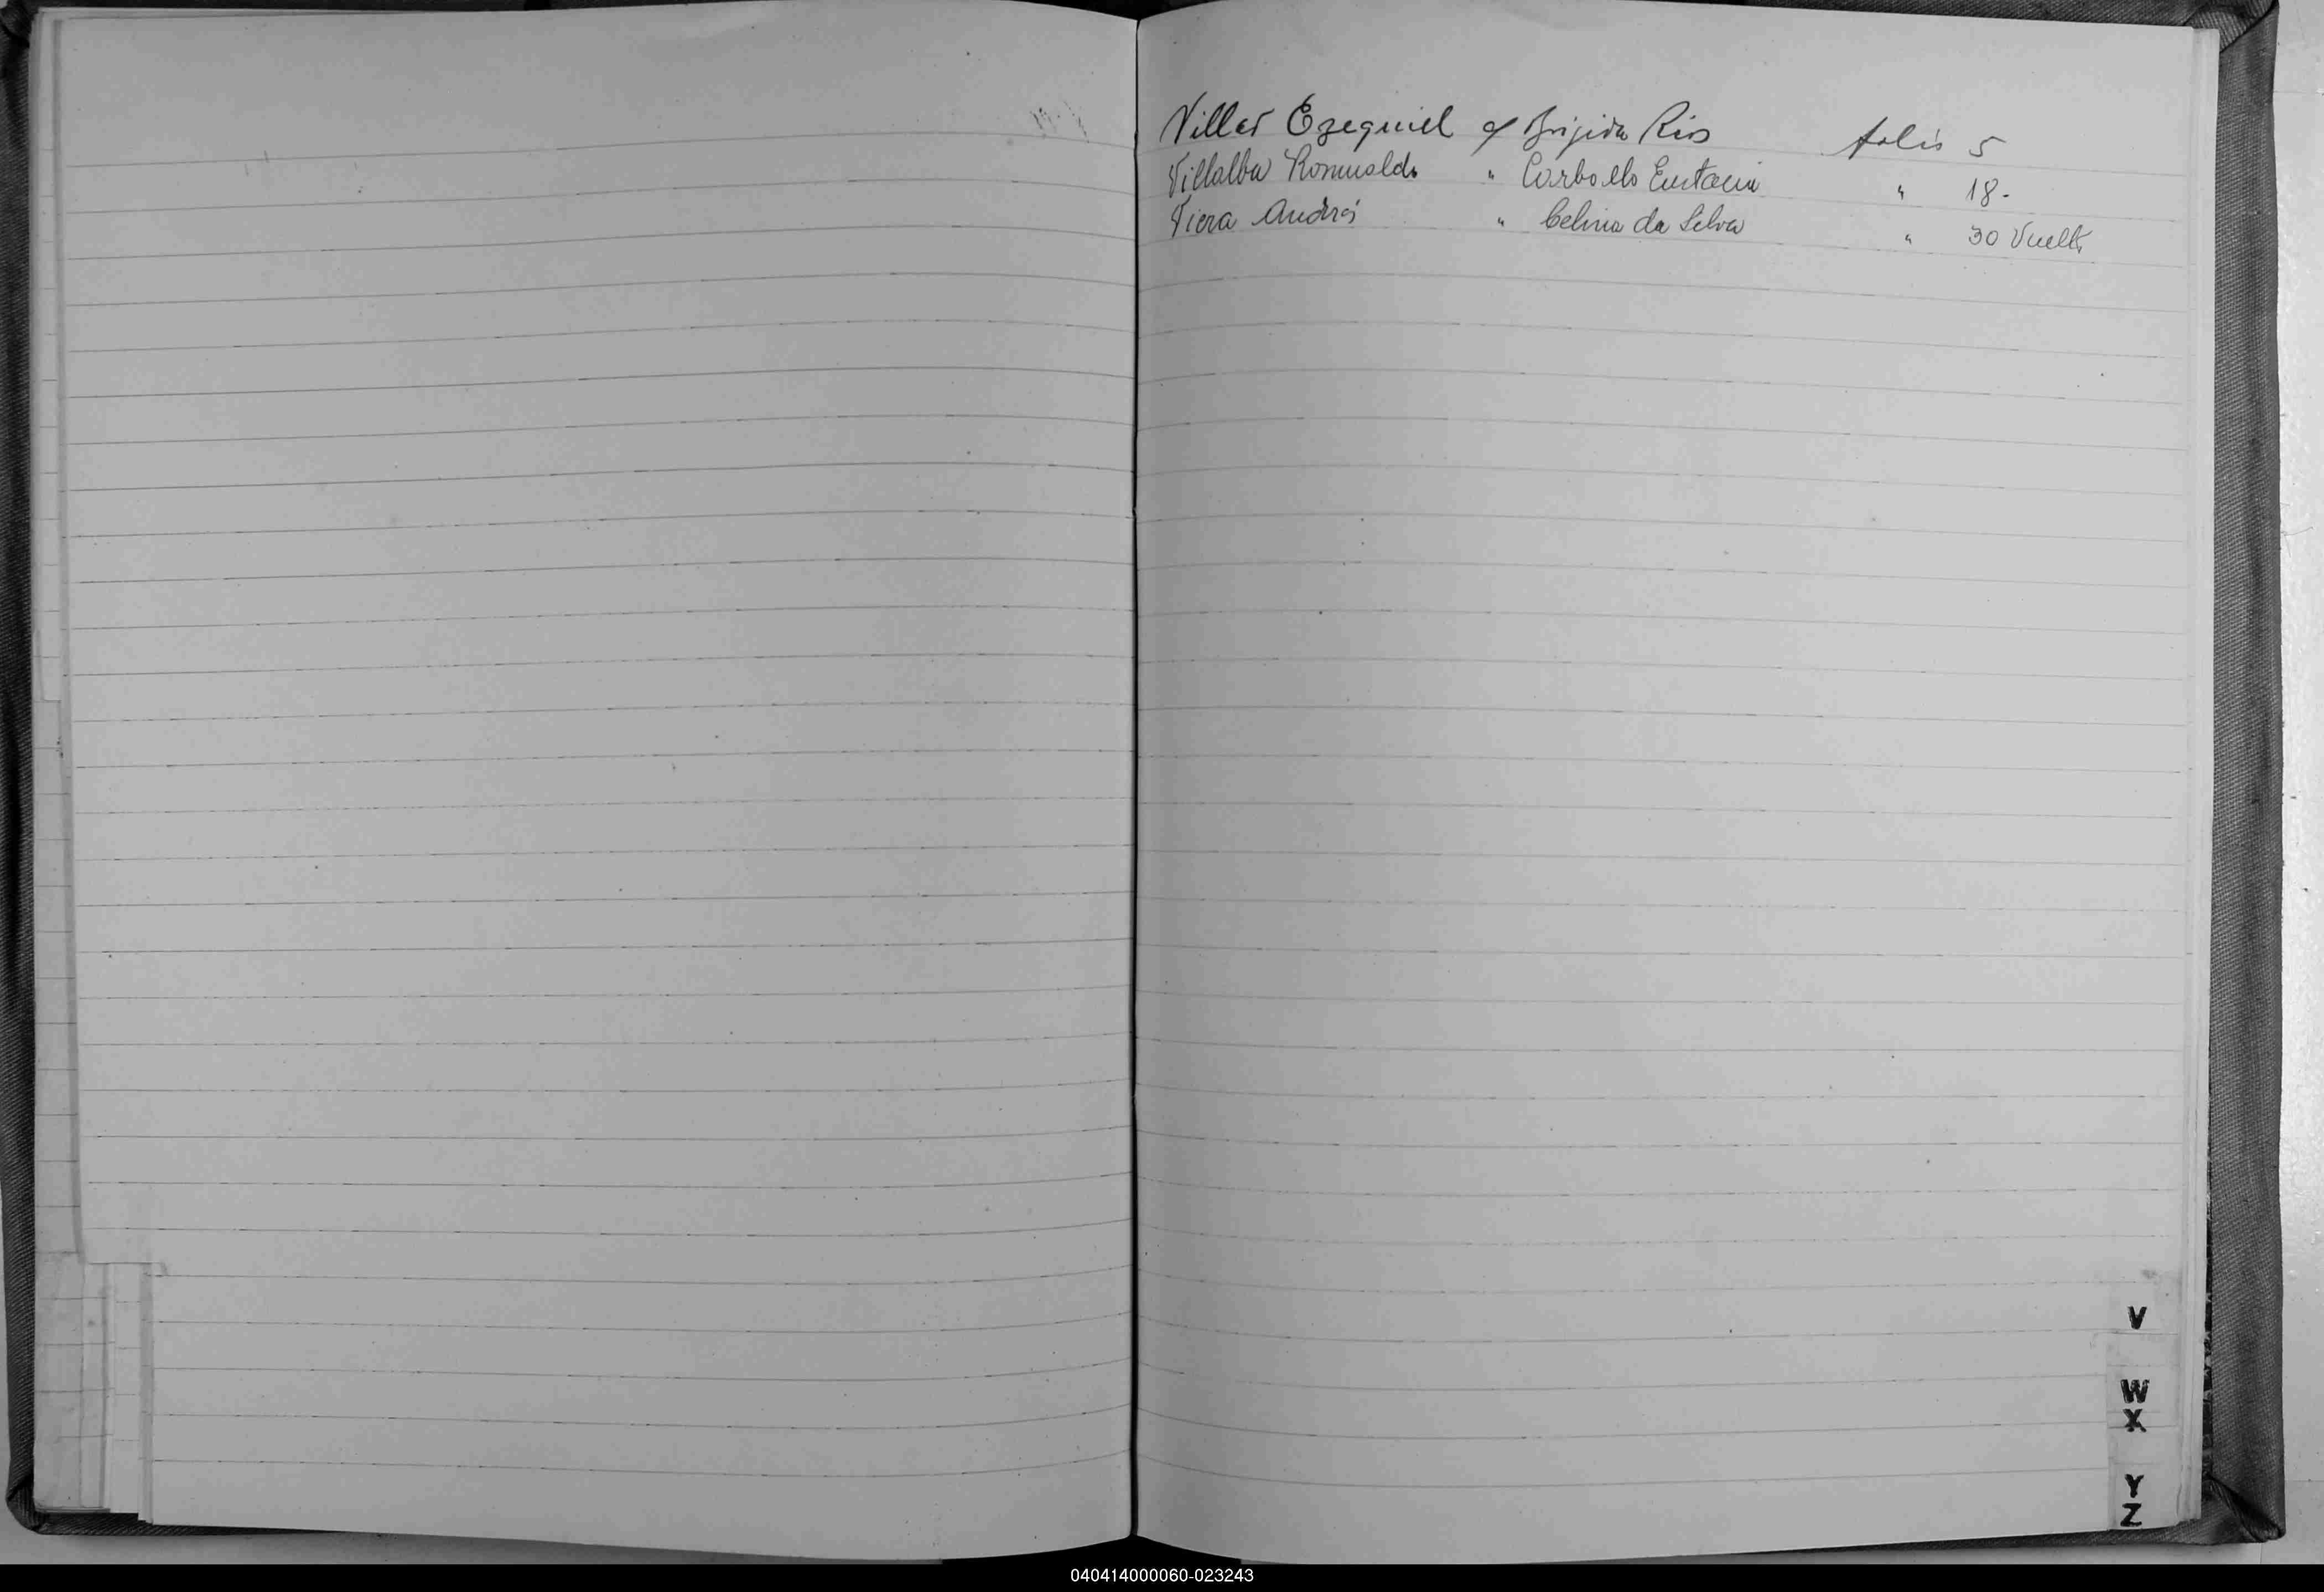 Viller Ezequiel y Brijida Rios folio 5
Villalba Romualdo " Carballo Eustacia " 18.
Viera Andrés " Celina da Silva " 30 Vuelt
V
W
X
Y
Z
040414000060-023243